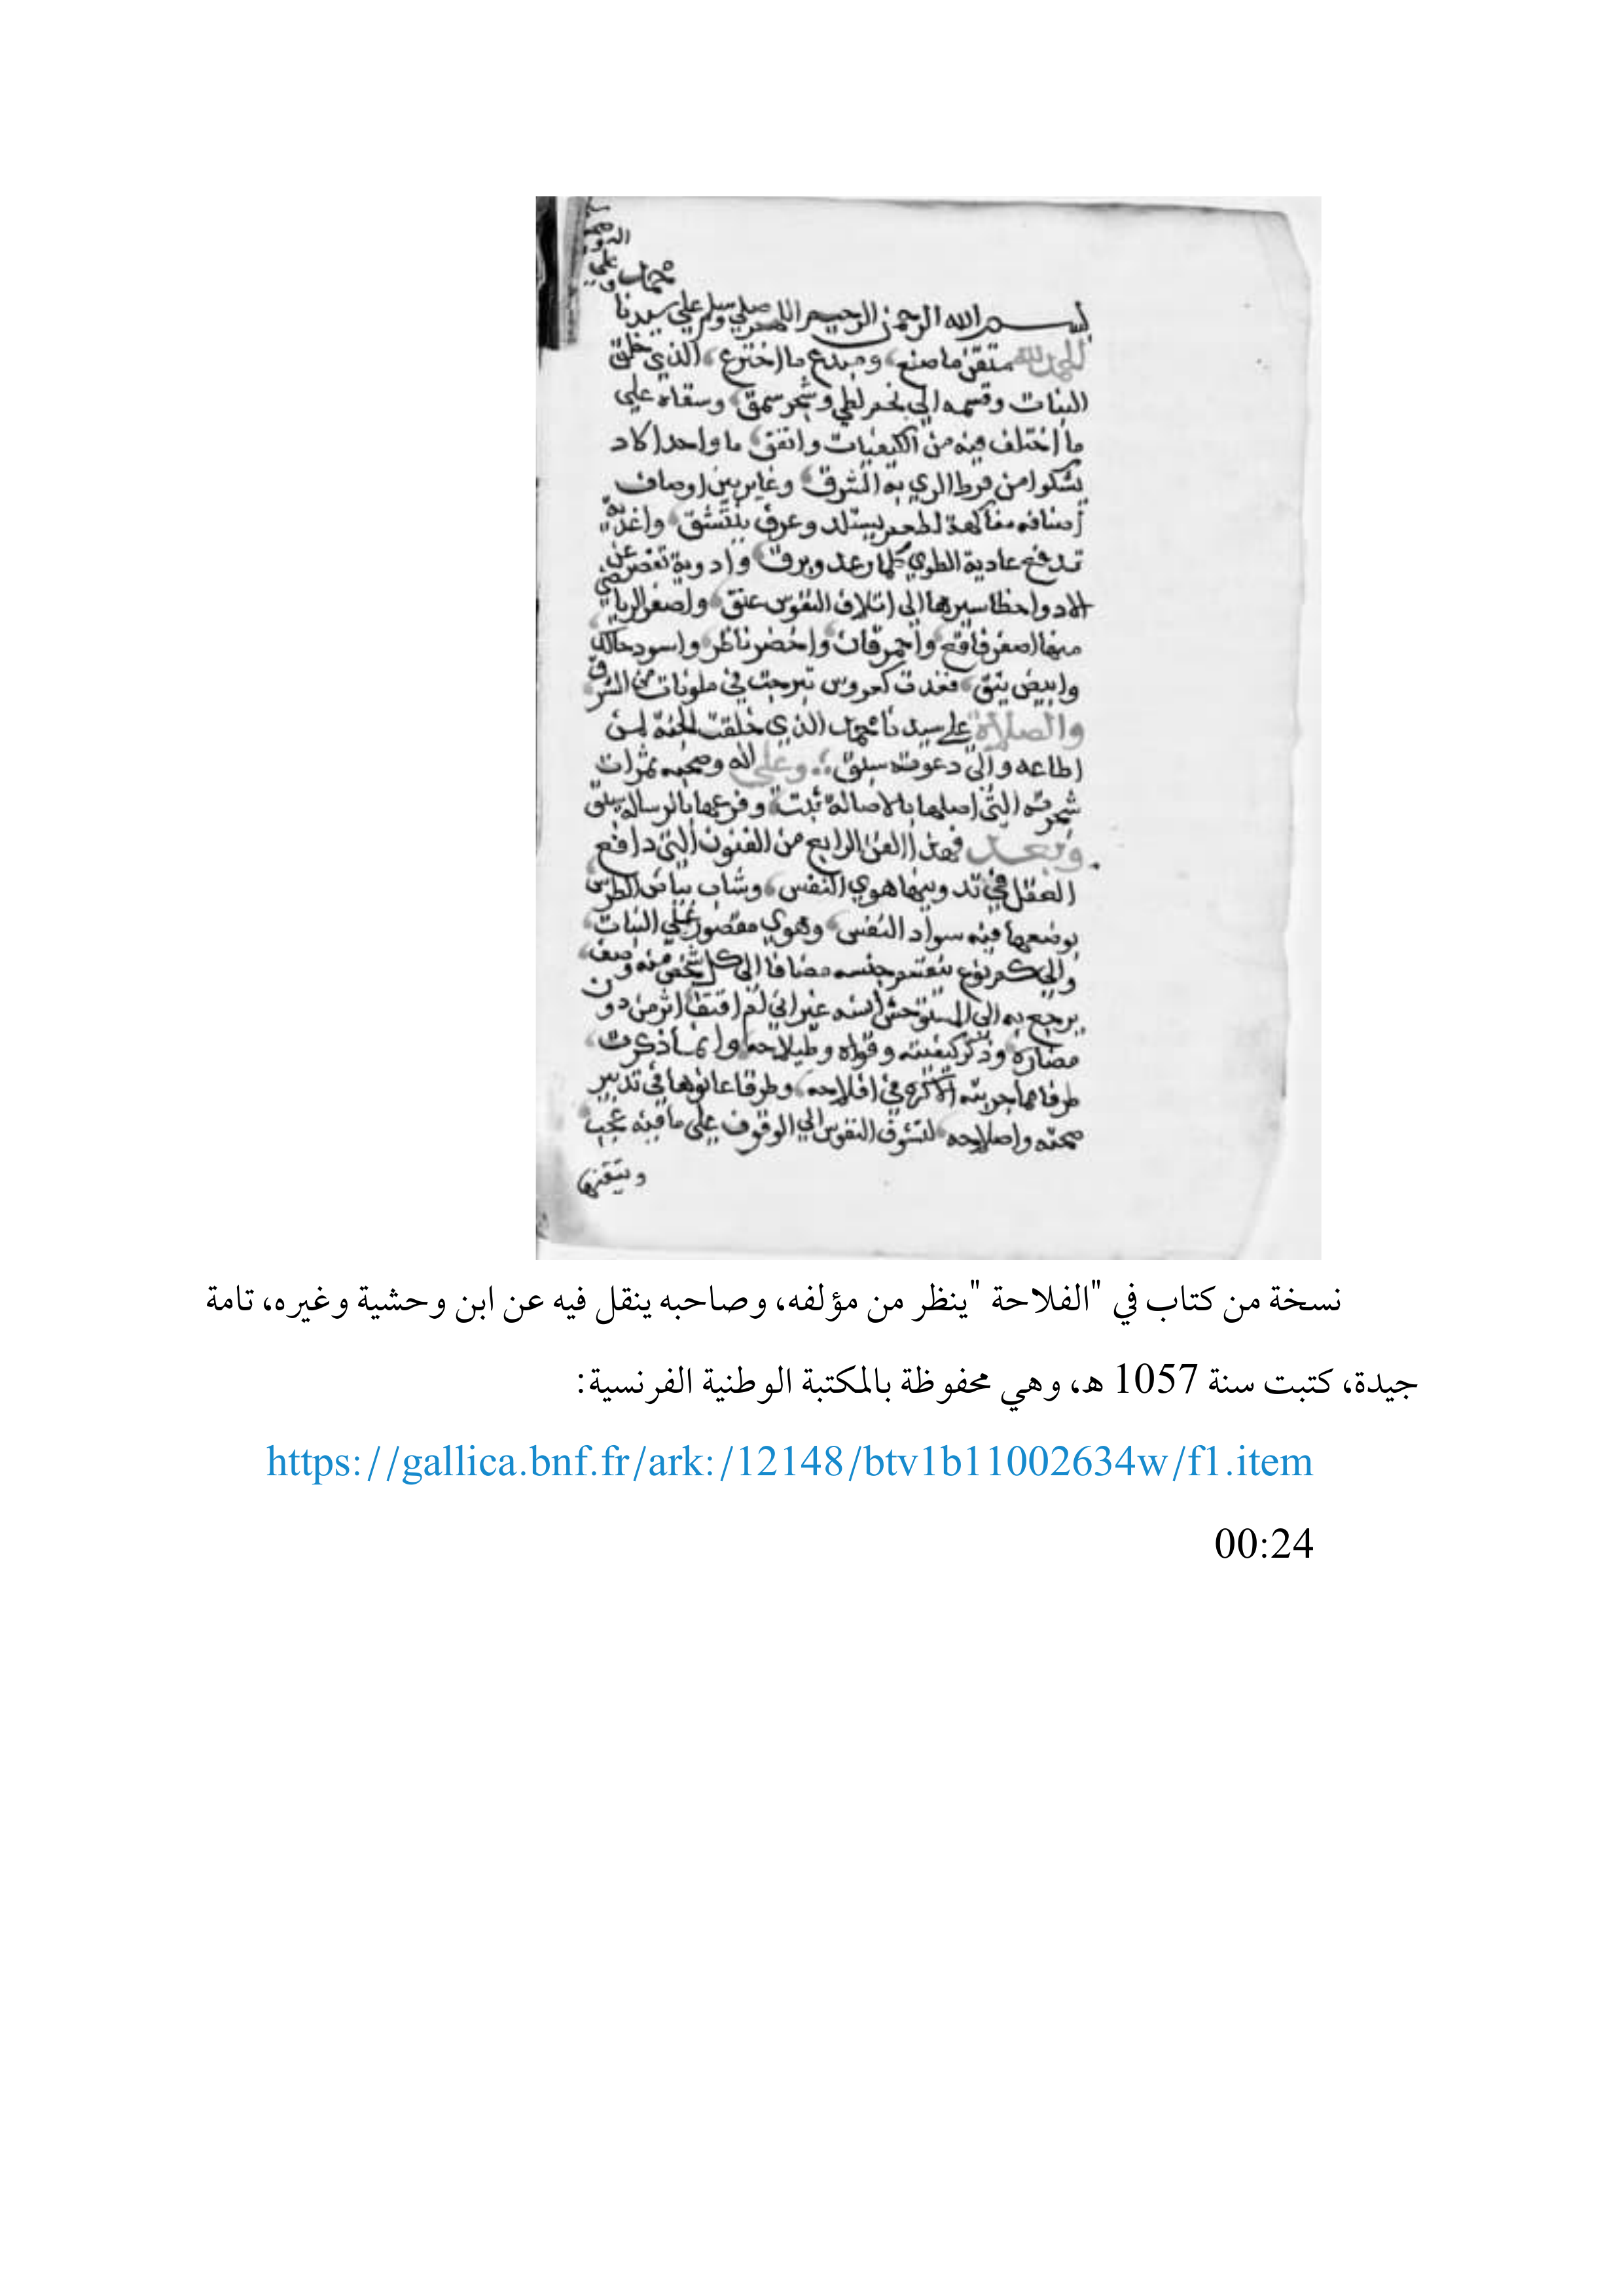 محمد وعلي
بسم الله الرحمن الرحيم اللهم صلي وسلم علي سيدنا
الحمد لله متقن ما صنع، ومبدع ما اخترع، الذي خلق
النبات وقسمه الي نجم لطي وشجر سمق، وسقاه علي
ما اختلف فيه من الكيفيات واتفق، ما واحدا كاد
يشكوا من فرط الري به الشرق، وغاير بين اوصاف
أصنافه مفاكهة لطعم يستلد وعرف ينتشق، واغدية
تدفع عادية الطوي كلما رعد وبرق، وادوية تغضن عن
الادوا خطا سيرها الي اتلاف النفوس عنق، واصفر الرياض
منها اصفر فاقع، واحمر قان، واخضر ناظر، واسود حالك
وابيض يقق، فغدت كعروس تبرجت في ملونات من السرق
والصلاة علي سيدنا محمد الذي خلقت الجنة لمن
اطاعه والي دعوته سبق، وعلي اله وصحبه ثمرات
شجرته التي اصلها بالاصالة ثبت، وفرعها بالرسالة بسق
وبعد فهذا الفن الرابع من الفنون التي دافع
العقل في تدوينها هوي النفس، وشاب بياض الطرس
بوضعها فيه سواد النقس، وهوي مقصور علي النبات،
والي كم نوع ينقسم جنسه مضافا الي كل شخص منه وصف،
يرجع به الي المستوحش انسه غير اني لم اقتف اثر من دون
مضاره وذكر كيفيته وقواه وانما ذكرت،
طرفا مما جربته الاكره في افلاحه، وطرقا عانوها في تدبير
صحته واصلاحه، لتشوف النفوس الي الوقوف علي ما فيه عجب
نسخة من كتاب في "الفلاحة "ينظر من مؤلفه، وصاحبه ينقل فيه عن ابن وحشية وغيره، تامة
جيدة، كتبت سنة 1057 هـ، وهي محفوظة بالمكتبة الوطنية الفرنسية:
https://gallica.bnf.fr/ark:/12148/btv1b11002634w/f1.item
00:24